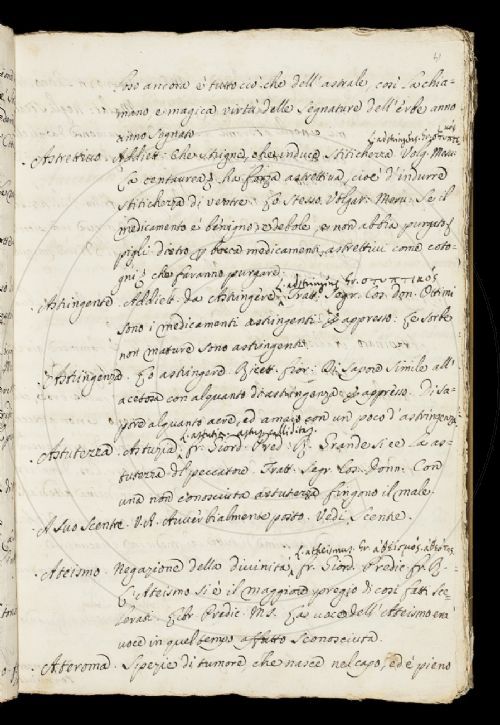 loso ancora è tutto ciò che dell'astrale, così la chia-
mano e magica virtù delle segnature dell'erbe anno
anno sognato.
L. adstringens. Gr. στυπτικός
Astrettivo. Addiett. Che strigne, che induce stitichezza. Volg. Mesu.
La centaurea ha forza astrettiva, cioè d'indurre
stitichezza di ventre. Lo stesso. Volgar. Mesu. Se il
medicamento è benigno, e debole, e non abbia purgato,
pigli dietro medicamenti astrettivi come coto-
gni, che faranno purgare.
L. adstringens Gr. στυπτικός
Astringente. Addiett. da Astringere. Tratt. Segr. Cos. Don. Ottimi
sono i medicamenti astringenti. E appresso: Le sorbe
non mature sono astringenti.
Astringenza. Lo astringere. Ricet. Fior. Di sapore simile all'
acetosa con alquanto di astringenza. E appresso. Di sa-
pore alquanto acre, ed amaro con un poco d'astringenza.
L. astutia, calliditas
Astutezza. Astuzia. Fr. Giord. Pred. R. Grande si è la as-
tutezza del peccatore. Tratt. Segr. Cos. Donn. Con
una non conosciuta astutezza fingono il male.
A suo scente. V. A. Avverbialmente posto. Vedi Scente.
L. atheismus. Gr. ἀθεϊσμός, ἀθεότης
Ateismo. Negazione della divinità. Fr. Giord. Predic. Fr. R.
L'Ateismo si è il maggiore pregio di così fatti sce-
lerati. Libr. Predic. MS. La voce dell'Ateismo era
voce in quel tempo affatto sconosciuta.
Ateroma. Spezie di tumore, che nasce nel capo, ed è pieno